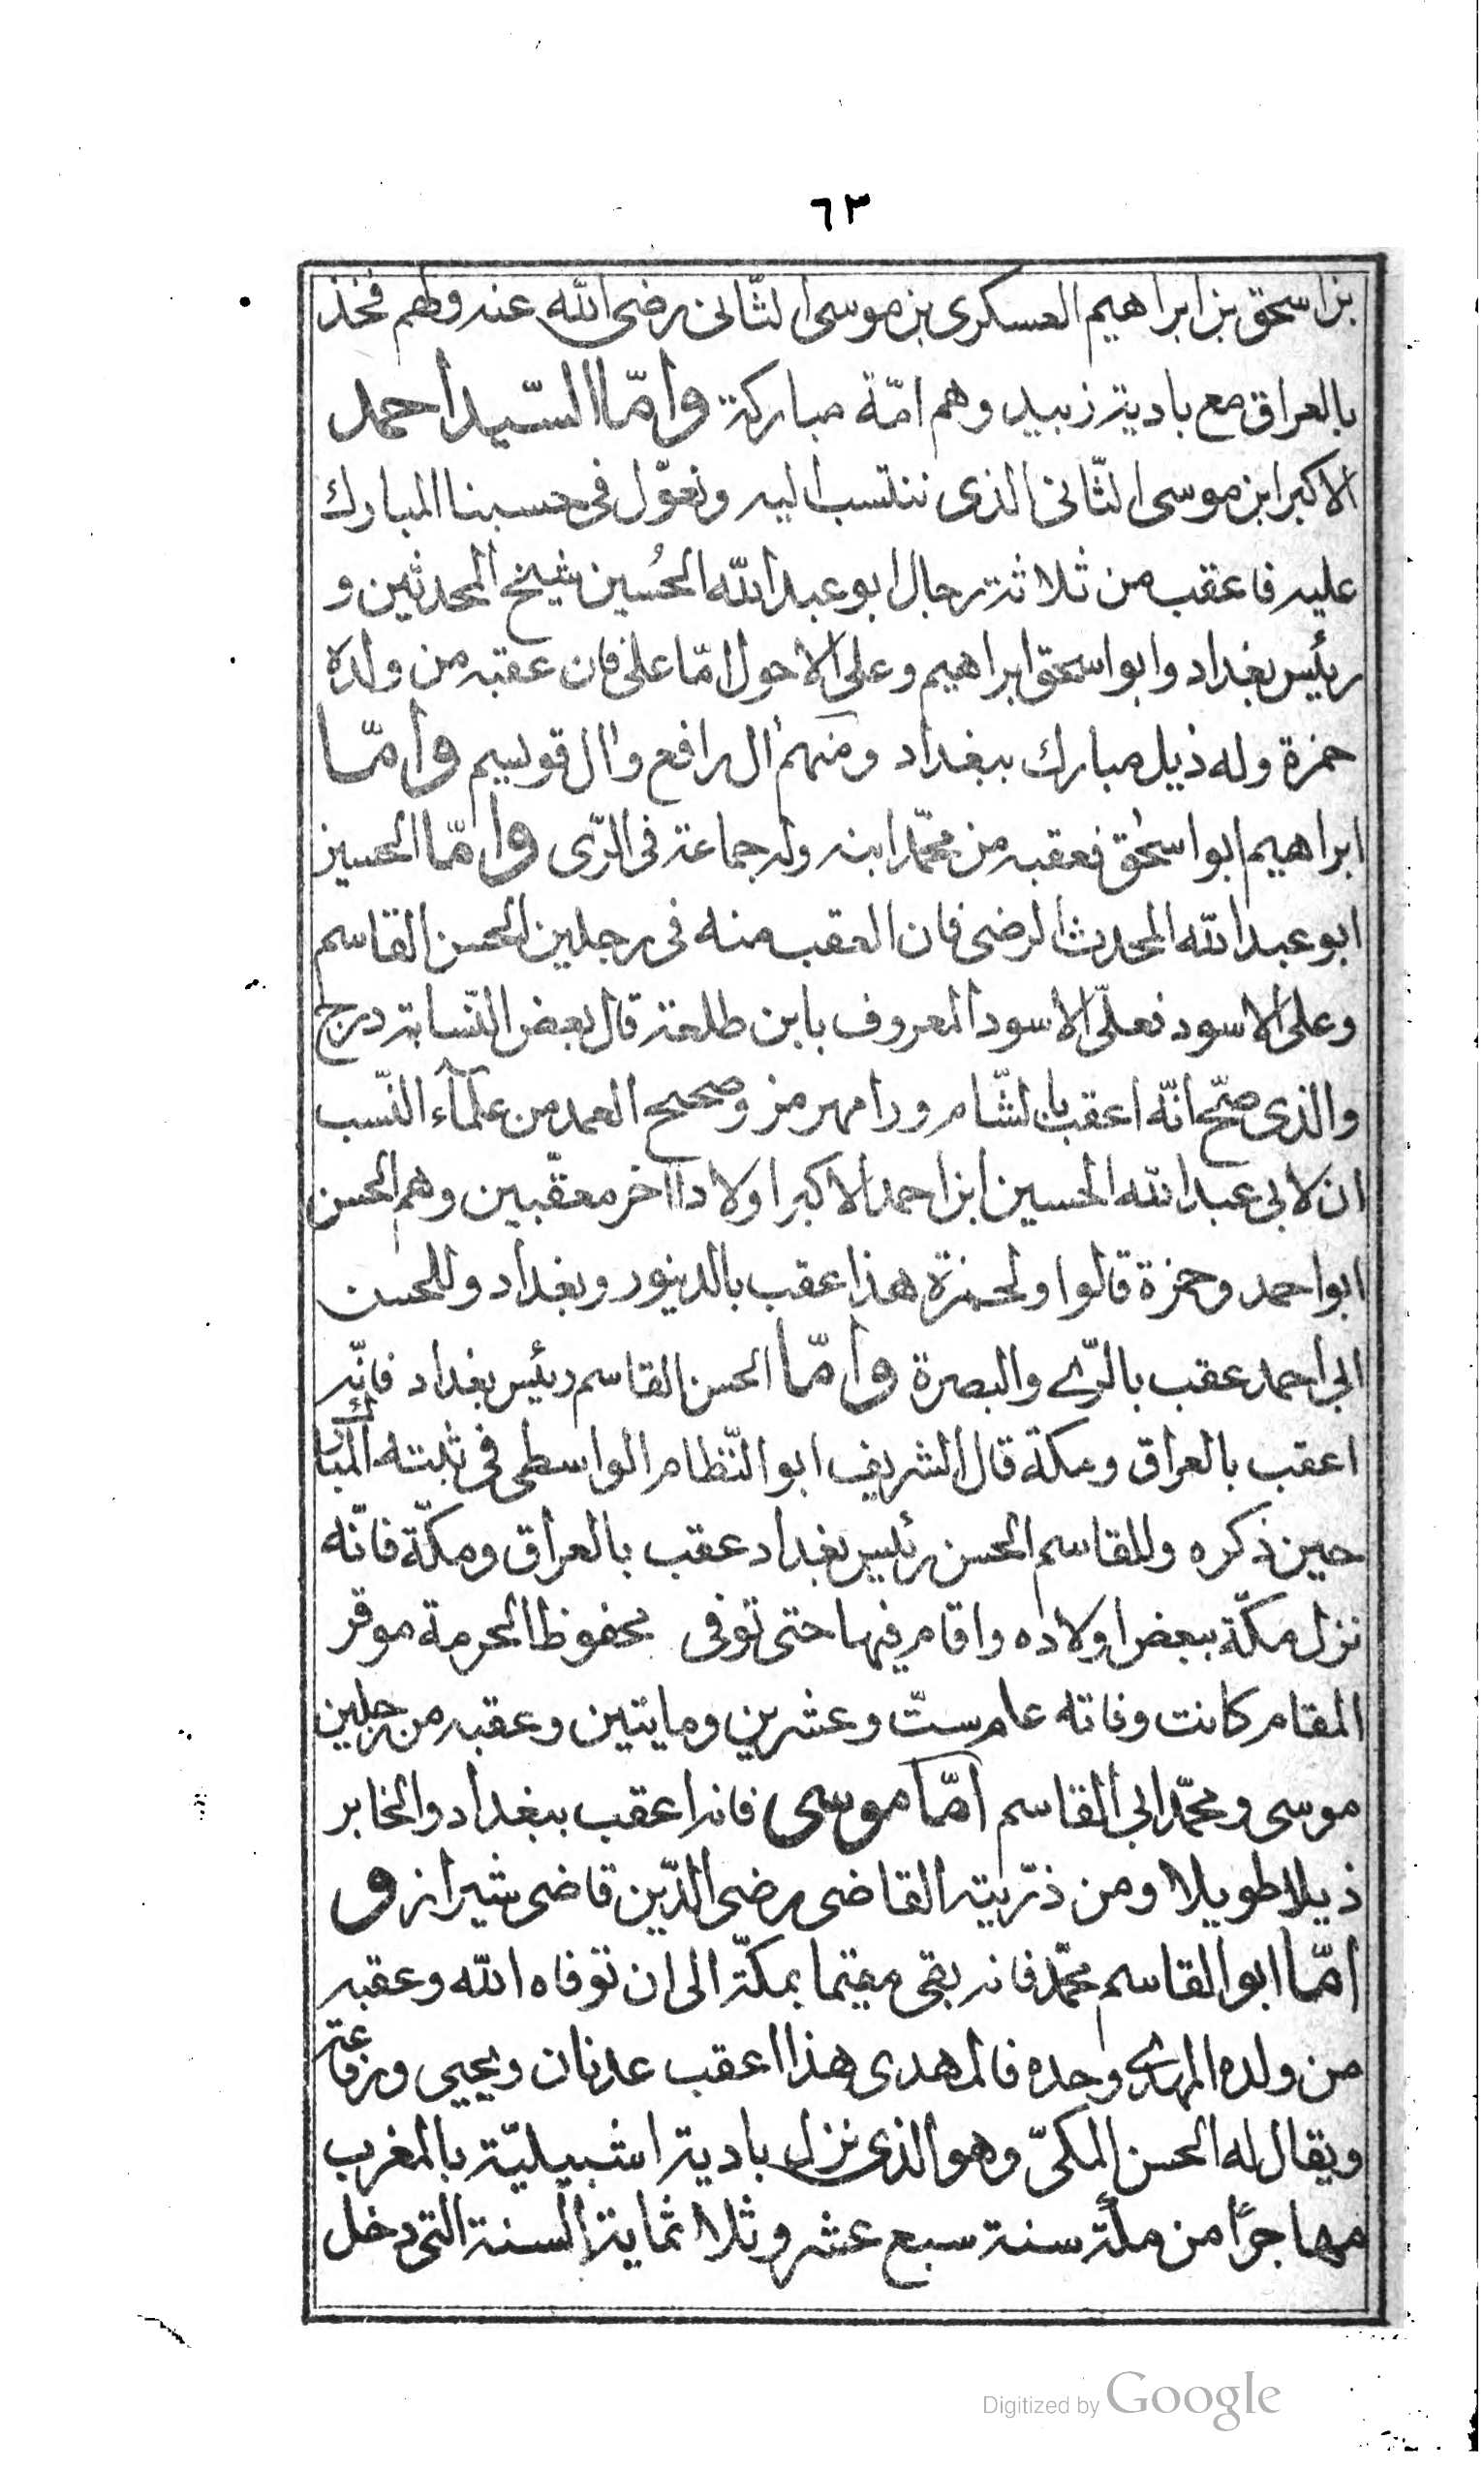 ٦٣
بن اسحق بن ابراهيم العسكرى بن موسى الثّانى رضى الله عنه ولهم فخذ
بالعراق مع بادية زبيد وهم امّة مباركة وامّا السّيد احمد
الاكبر ابن موسى الثّانى الذى ننتسب اليه ونعوّل فى حسبنا المبارك
عليه فاعقب من ثلاثة رجال ابو عبد الله الحُسين شيخ المحدثين و
رئيس بغداد وابو اسحق ابراهيم وعلى الاحول امّا على فان عقبه من ولده
حمزة وله ذيل مبارك ببغداد ومنهم ال رافع وال قوسيم وامّا
ابراهيم ابو اسحٰق فعقبه من محمّد ابنه وله جماعة فى الرّى وامّا الحسين
ابو عبد الله المحدث الرضى فان العقب منه فى رجلين الحسن القاسم
وعلى الاسود فعلىّ الاسود المعروف بابن طلعة قال بعض النّسابة درج
والذى صحّ انّه اعقب بالشّام ورامهرمز وصحيح العمد من علمآء النّسب
ان لابى عبد الله الحسين ابن احمد الاكبر اولادا اخر معقّبين وهم الحسن
ابو احمد وحمزة قالوا ولحمزة هذا عقب بالدينور وبغداد وللحسن
ابى احمد عقب بالرّى والبصرة وامّا الحسن القاسم رئيس بغداد فانّه
اعقب بالعراق ومكة قال الشريف ابو النّظام الواسطى فى ثبته المبارك
حين ذكره وللقاسم الحسن رئيس بغداد عقب بالعراق ومكّة فانّه
نزل مكّة ببعض اولاده واقام فيها حتى توفى محفوظ الحرمة موقر
المقام كانت وفاته عام ستّ وعشرين ومايتين وعقبه من رجلين
موسى ومحمّد ابى القاسم امّا موسى فانه اعقب ببغداد والخابر
ذيلا طويلا ومن ذرّيته القاضى رضى الدّين قاضى شيراز و
امّا ابو القاسم محمّد فانه بقى مقيما بمكّة الى ان توفاه الله وعقبه
من ولده المهدى وحده فالمهدى هذا اعقب عدنان ويحيى ورفاعة
ويقال له الحسن المكىّ وهو الذى نزل بادية اشبيليّة بالمغرب
مهاجرًا من مكة سنة سبع عشر وثلاثماية السنة التى دخل
Digitized by Google